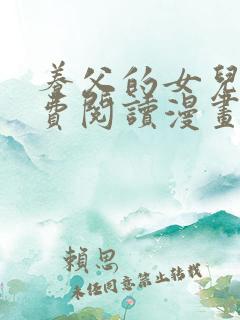 養父的女兒
費閱讀漫畫
賴思
未經同意禁止轉載